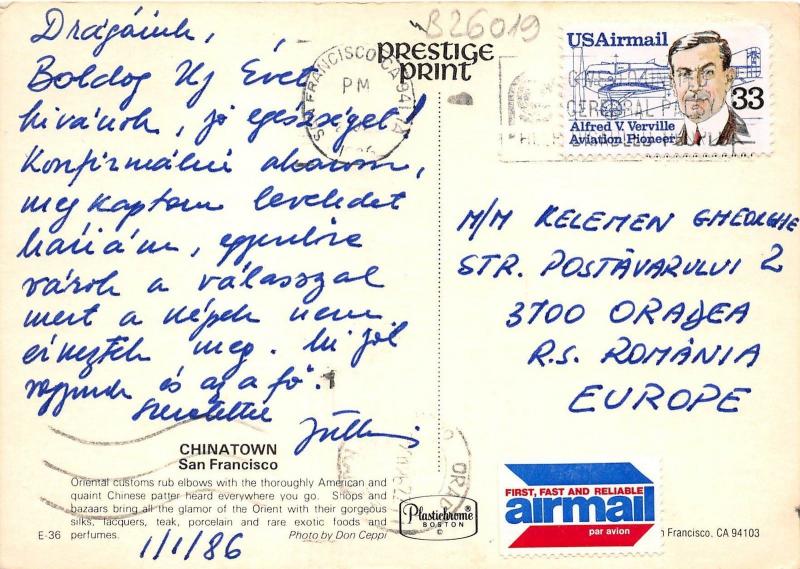 B26019
Drágáink,
Boldog Új Évet
kivánok, jó egészséget!
Konfirmálni akarom,
megkaptam leveledet
egyenlőre
várok a válasszal
mert a képek nem
érkeztek meg. Mi jól
vagyunk és az a fő.
Szeretettel
1/1/86
PRESTIGE
PRINT
SAN FRANCISCO CA 941
PM
USAirmail
33
Alfred V. Verville
Aviation Pioneer
CEREBRAL PA
M/M KELEMEN GHEORGHE
STR. POSTĂVARULUI 2
3700 ORADEA
R.S. ROMÂNIA
EUROPE
CHINATOWN
San Francisco
Oriental customs rub elbows with the thoroughly American and
quaint Chinese patter heard everywhere you go. Shops and
bazaars bring all the glamor of the Orient with their gorgeous
silks, lacquers, teak, porcelain and rare exotic foods and
perfumes.
Photo by Don Ceppi
E-36
ORAD
Plastichrome®
BOSTON
©
FIRST, FAST AND RELIABLE
airmail
par avion
n Francisco, CA 94103